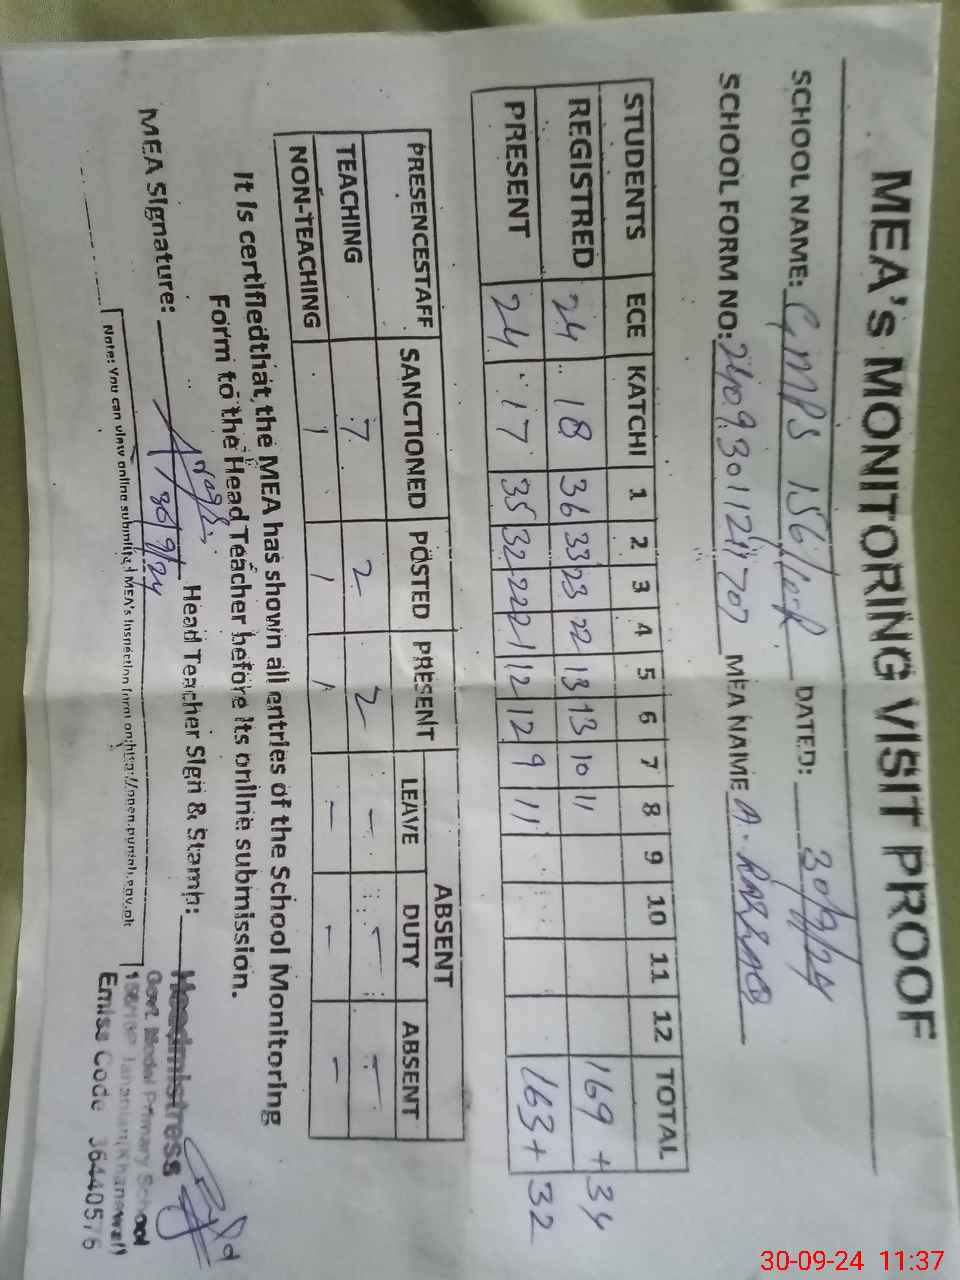 MEA's MONITORING VISIT PROOF
SCHOOL NAME: GMPS 156/10-R DATED: 30/9/24
SCHOOL FORM NO: MEA NAME
STUDENTS ECE KATCHI 1 2 3 4 5 6 7 8 9 10 11 12 TOTAL
REGISTRED 24 18 36 33 23 22 13 13 10 11 169 + 34
PRESENT 24 17 35 32 22 21 12 12 9 11 163 + 32
PRESENCESTAFF SANCTIONED POSTED PRESENT ABSENT
LEAVE DUTY ABSENT
TEACHING 7 2 2 - - -
NON-TEACHING 1 1 1 - - -
It is certifiedthat the MEA has shown all entries of the School Monitoring
Form to the Head Teacher before its online submission.
MEA Signature: 30/9/24 Head Teacher Sign & Stamp:
Headmistress
Govt. Model Primary School
Jahanian (Khanewal)
Emiss Code 36440576
Note: You can view online submitted MEA's Inspection form on:http://open.punjab.gov.pk
30-09-24 11:37